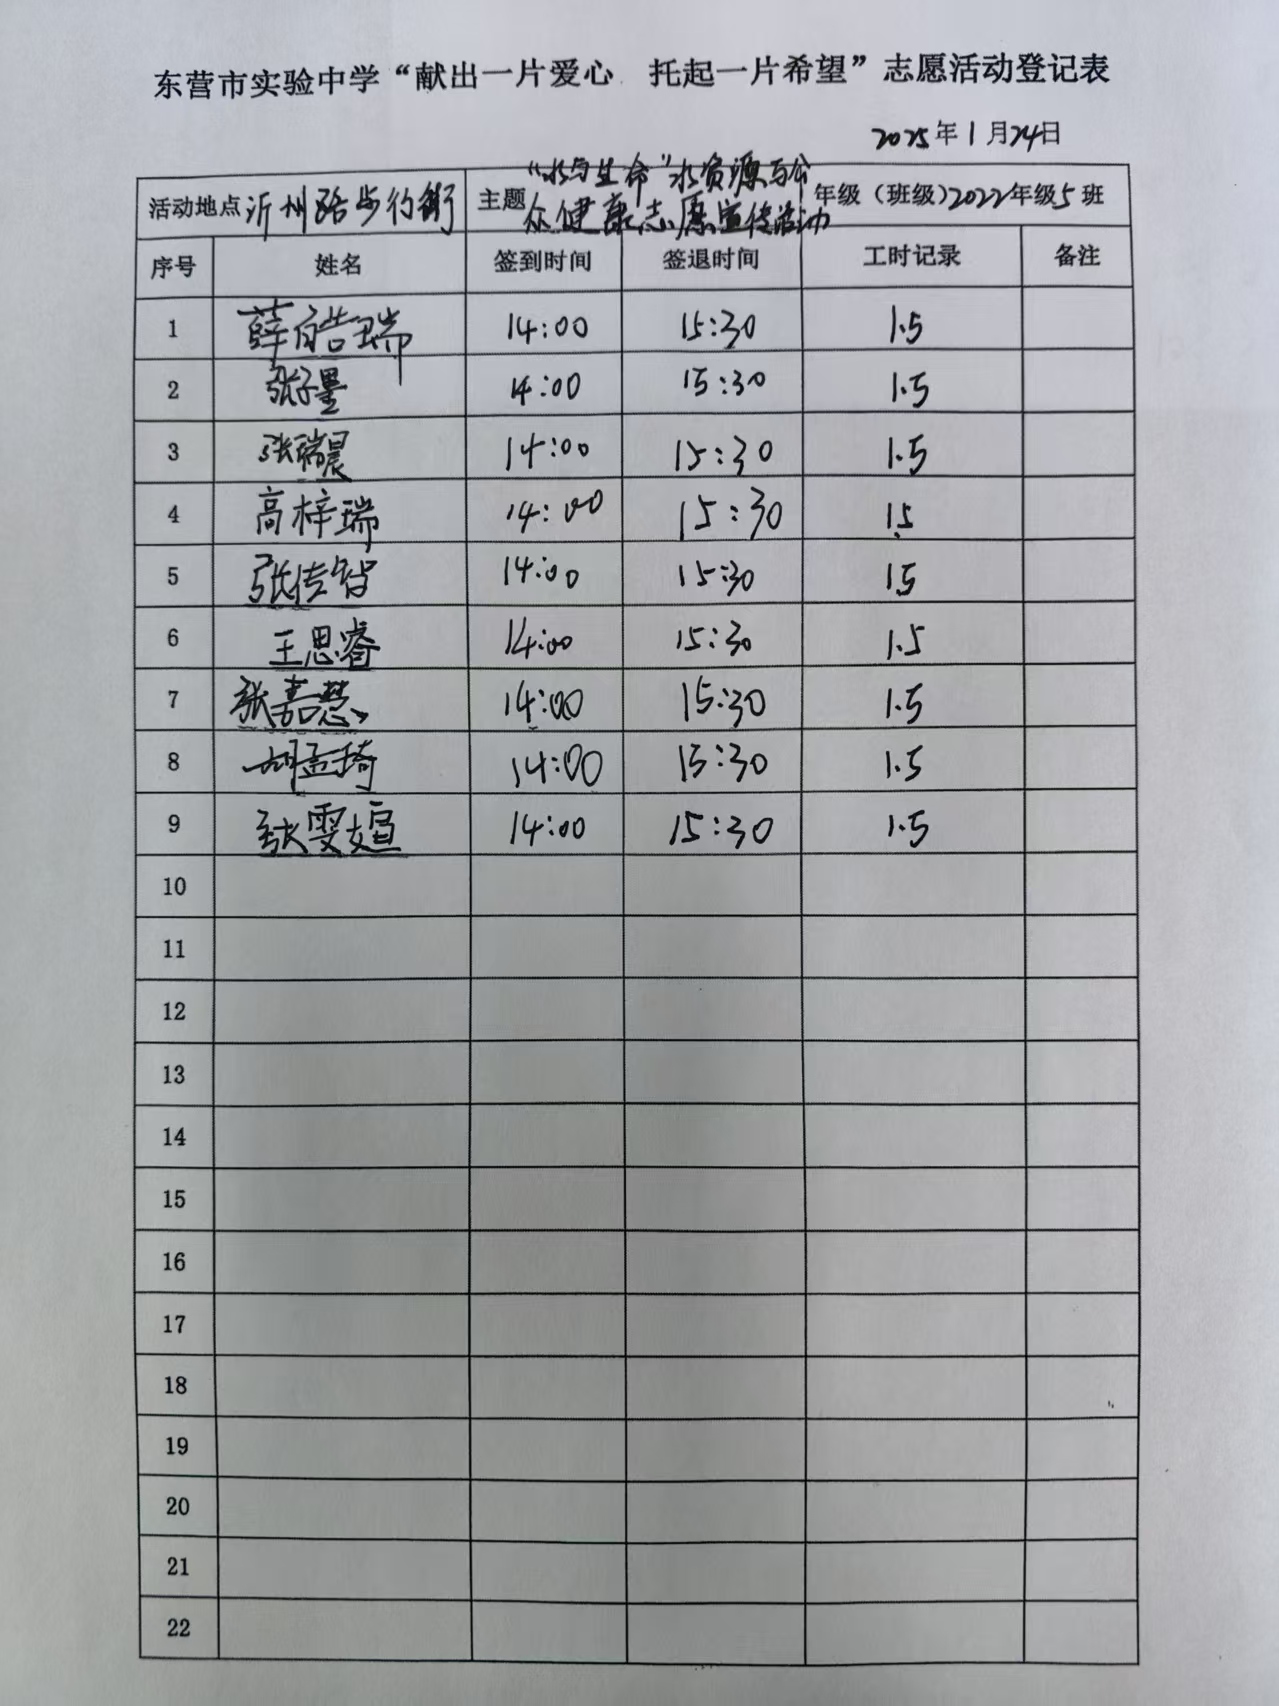 东营市实验中学“献出一片爱心 托起一片希望”志愿活动登记表
2025年1月24日
活动地点 沂州路步行街 主题 “水与生命”水资源与公众健康志愿宣传活动 年级（班级）2022年级5班
序号 姓名 签到时间 签退时间 工时记录 备注
1 薛皓瑞 14:00 15:30 1.5
2 张子墨 14:00 15:30 1.5
3 张瑞晨 14:00 15:30 1.5
4 高梓瑞 14:00 15:30 1.5
5 张传智 14:00 15:30 1.5
6 王思睿 14:00 15:30 1.5
7 张嘉慧 14:00 15:30 1.5
8 胡孟琦 14:00 15:30 1.5
9 张雯媗 14:00 15:30 1.5
10
11
12
13
14
15
16
17
18
19
20
21
22